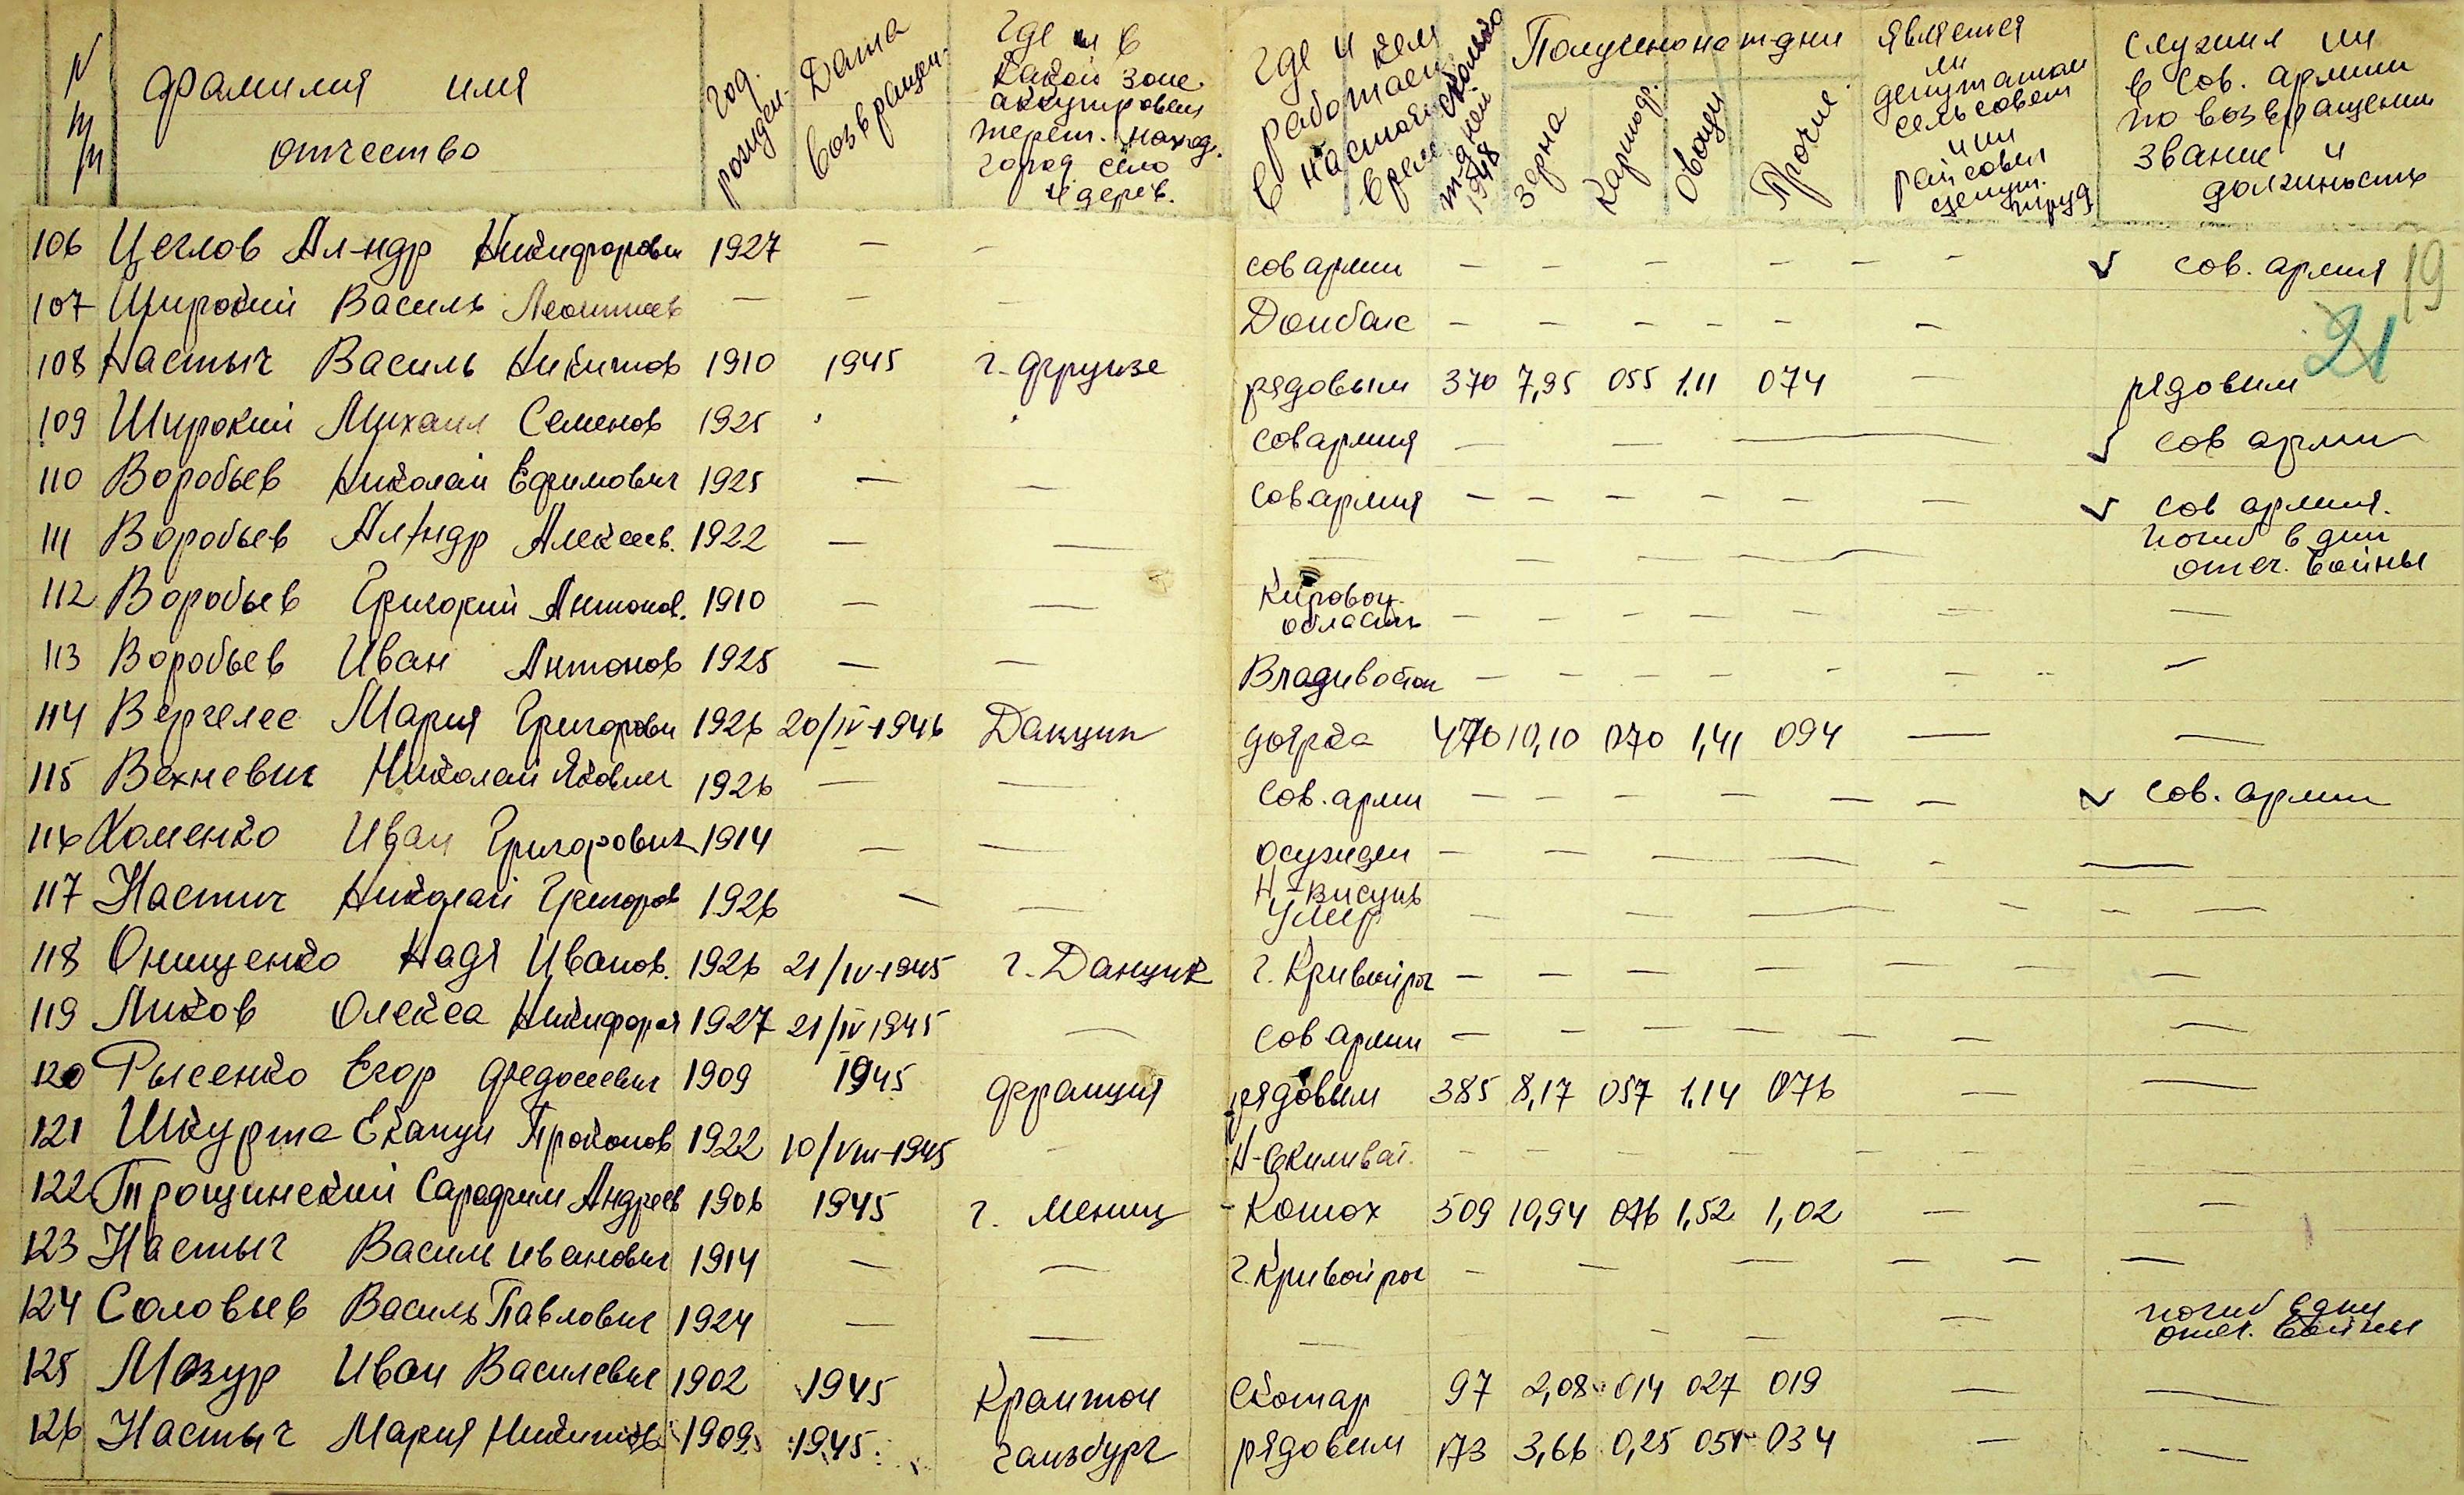 N п/п
фамилия имя
отчество
год. рожден.
Дата возвращен.
Где и в
какой зоне
аккупирован
терит. наход.
город село
и дерев.
Где и кем
работает
в настоящ
врем
сколько т-дней 1948
Получено на т-дни
зерна
картоф.
овощи
Прочие
является
ли
депутатом
сельсовет
или
райсовет
депут.
труд
служил ли
в Сов. армии
по возвращении
звание и
должность
19
21
106 Цеглов Ал-ндр Никифорови 1927 — — сов армии — — — — — — ✓ сов. армия
107 Широкий Василь Леонтиев — — — Донбасс — — — — — —
108 Настыч Василь Никитов 1910 1945 г. Фрунзе рядовым 370 7,95 055 1.11 074 — рядовим
109 Широкий Михаил Семенов 1925 сов армия — — — ✓ сов арми
110 Воробьев Николай Ефимович 1925 — — сов армия — — — — — — ✓ сов армия.
111 Воробьев Ал/ндр Алексеев. 1922 — — — — — — погиб в дни
отеч. войны
112 Воробьев Григорий Антонов. 1910 — — Кировог.
область — — — — — — —
113 Воробьев Иван Антонов 1925 — — Владивосток — — — — — — —
114 Вергелес Мария Григорови 1926 20/IV-1946 Данциг доярка 470 10,10 070 1,41 094 — —
115 Вахневич Николай Якович 1926 — — Сов. арми — — — — — — ✓ сов. арми
116 Хоменко Иван Григорович 1914 — — осужден — — — — — —
117 Настич Николай Григоров 1926 — — Н-Висунь
умер — — — — — —
118 Онищенко Надя Иванов. 1926 21/IV-1945 г. Данциг г. Кривой рог — — — — — — —
119 Ликов Олекса Никифоров 1927 21/IV 1945 — сов армии — — — — — — —
120 Рысенко Егор Федосеевич 1909 1945 франция рядовым 385 8,17 057 1.14 076 — —
121 Шкурта Прокопов 1922 10/VIII-1945 — Н-Скилеват. — — — — — — —
122 Трощинский Сарафим Андреев 1906 1945 г. Мениц - Конюх 509 10,94 076 1,52 1,02 — —
123 Настыч Василь иванович 1914 — — г. Кривой рог — — — — — —
124 Соловьев Василь Павлович 1924 — — — — — — погиб в дни
отеч. войны
125 Мазур Иван Василевич 1902 1945 Крантон скотар 97 2,08 014 027 019 — —
126 Настыч Мария Никитов 1909 1945 гамзбург рядовим 173 3,66 0,25 051 034 — —